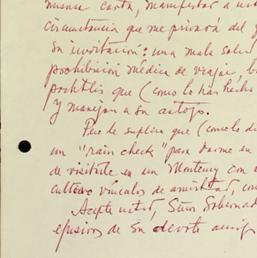 manifestar a us
circunstancia que me privará del
su invitación: una mala salud
prohibición médica de viajar,
que (como lo has hecho
y manejar a su antojo.
Pero le suplica que (
un "rain check" para darme su
de visitarle en un Monterrey con
vínculos de amistad,
Acepte usted, Señor Gobernad
efusivos de su devoto amigo